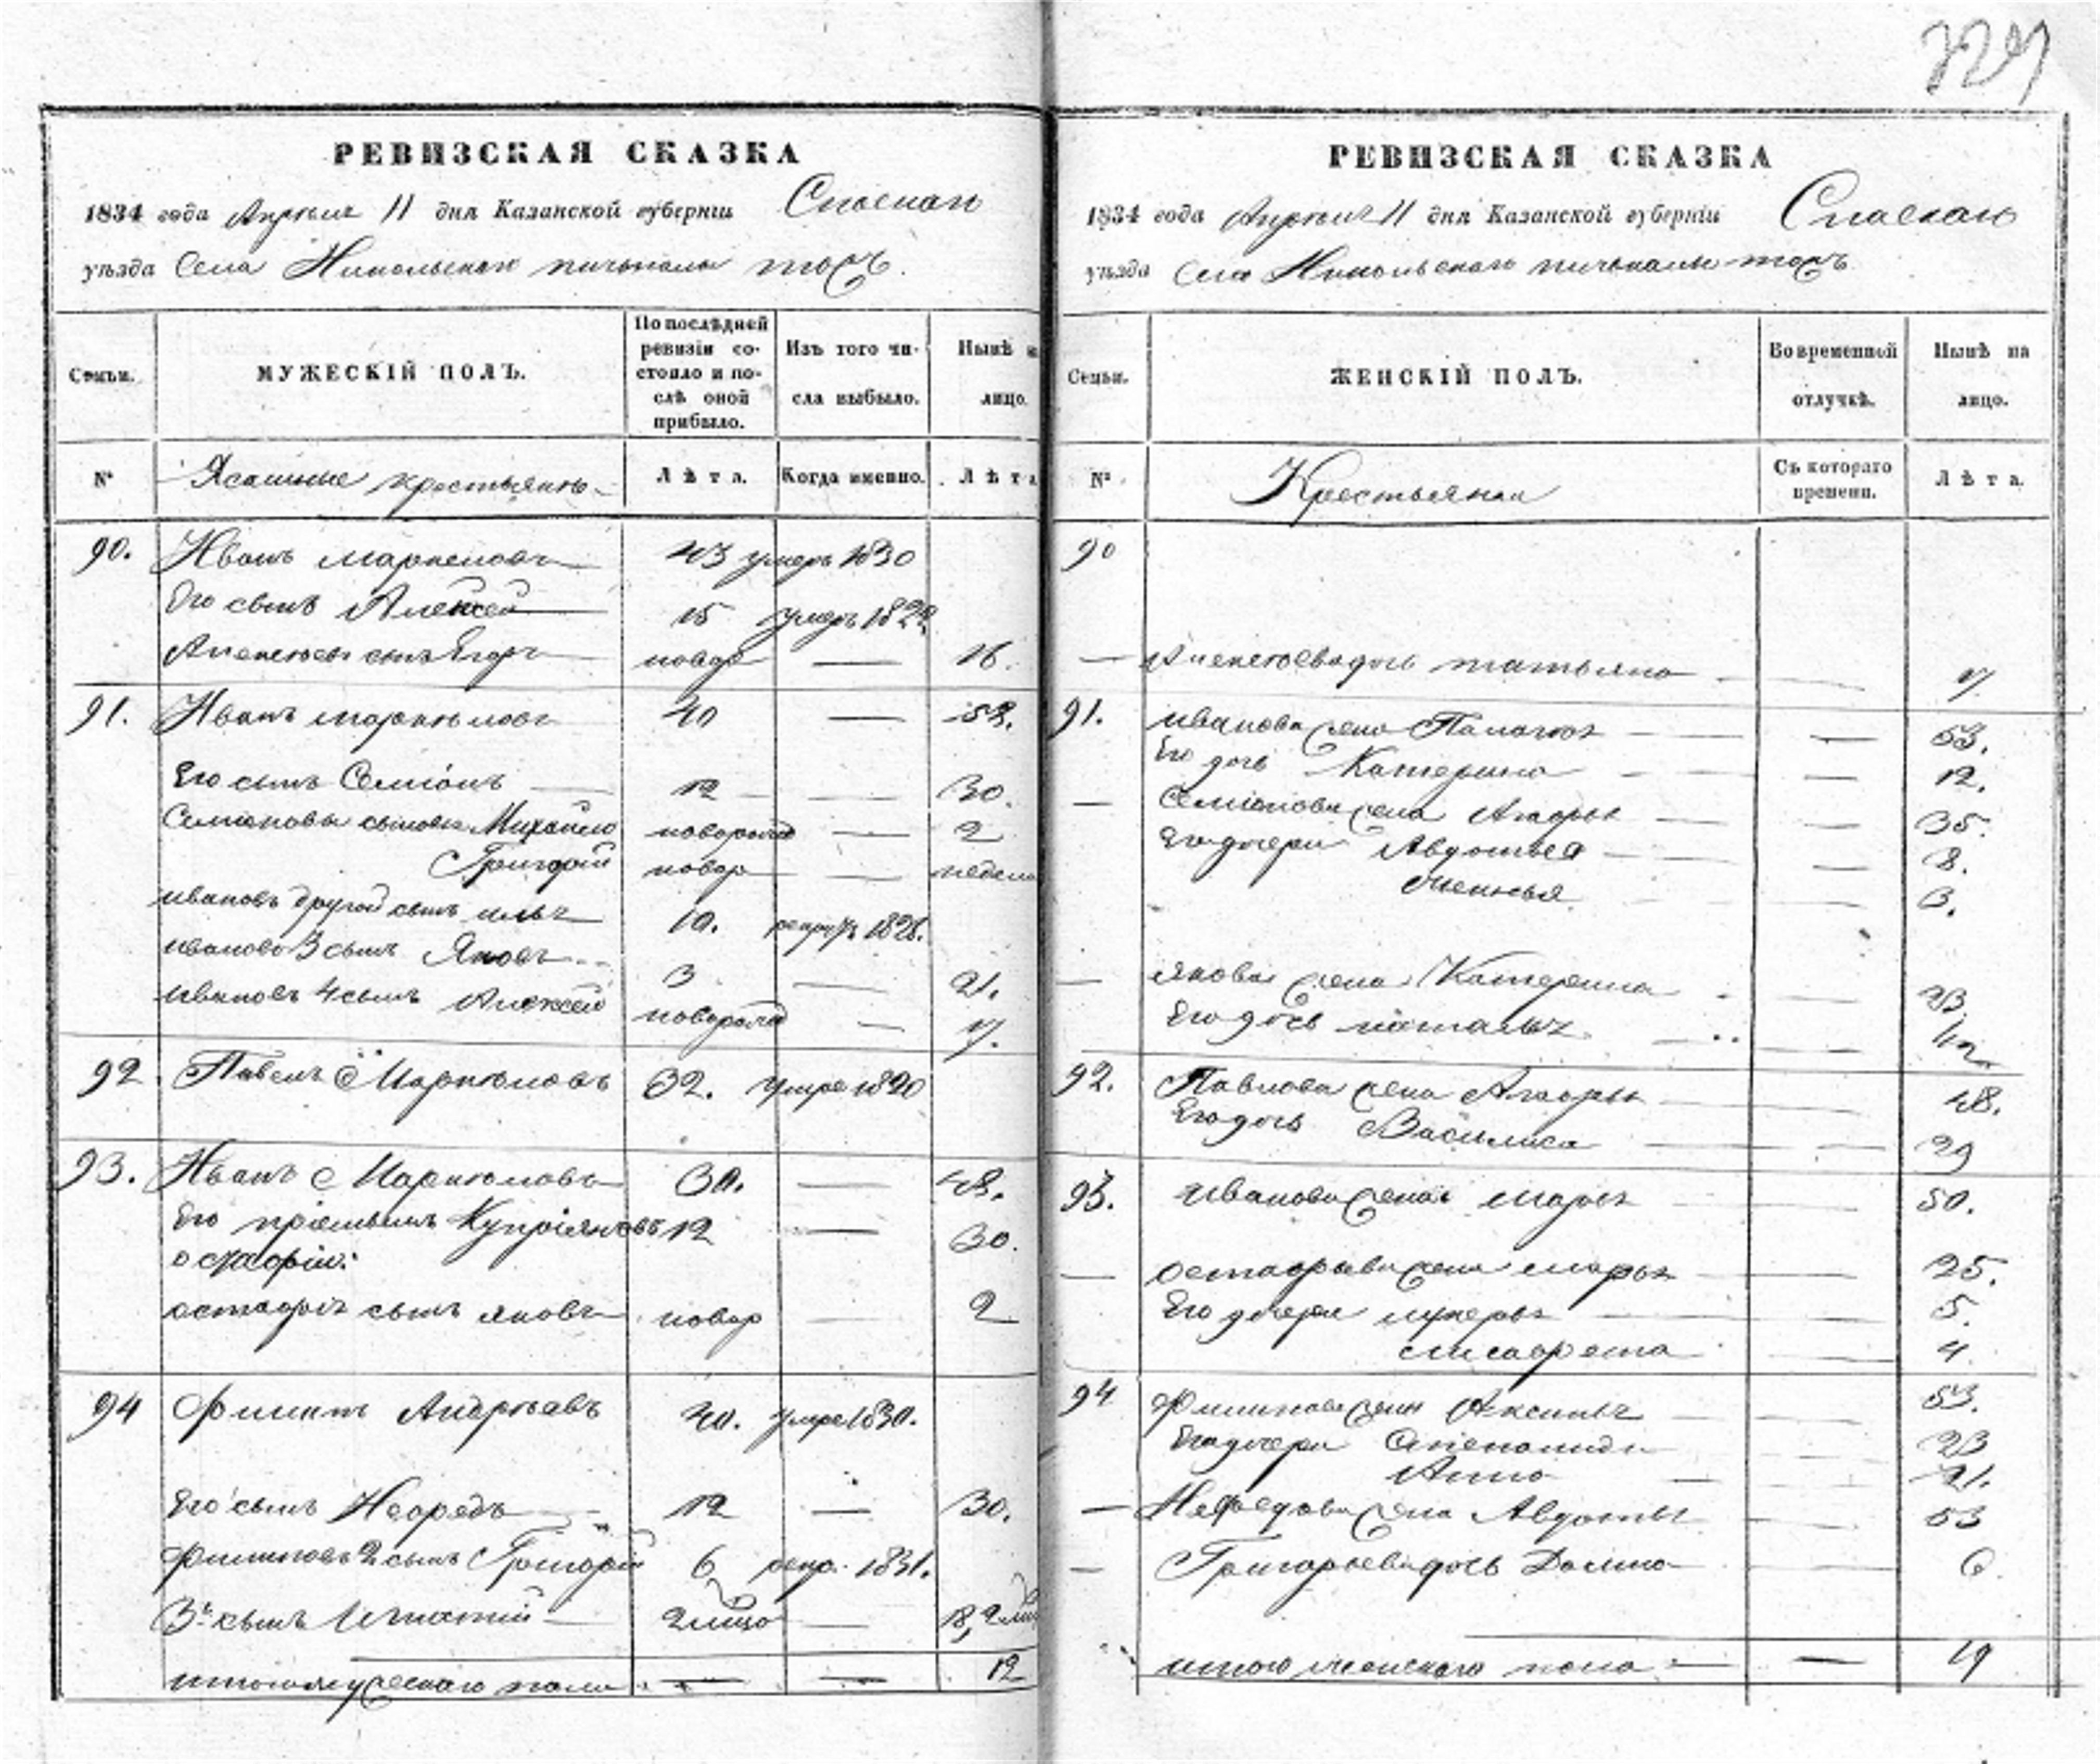 РЕВИЗСКАЯ СКАЗКА
1834 года Апреля 11 дня Казанской губерніи Спаскаго
уѣзда Села Никольскаго тожъ.
Семьи.
МУЖЕСКІЙ ПОЛЪ.
По послѣдней ревизіи состояло и послѣ оной прибыло.
Изъ того числа выбыло.
Нынѣ на лицо.
№
Ясашные крестьяне
Лѣта.
Когда именно.
Лѣта
90. Иванъ Маркеловъ 43 умеръ 1830
Его сынъ Алексей 15 умеръ
Алексеевъ сынъ Егоръ новор 16.
91. Иванъ Маркѣловъ 40 — 58.
Его сынъ Семіонъ 12 — 30.
Семіоновы сыновья Михайло новорож — 2
Григорій новор — недели
Ивановъ другой сынъ Илья 10. рекру 1828.
Иваново 3 сынъ Яковъ 3 — 21.
Ивановъ 4 сынъ Алексей новорож — 7.
92 Павелъ Маркѣловъ 32. умре 1820
93. Иванъ Маркѣловъ 30. — 48.
Его пріемышъ Купріяновъ 12 — 30.
остафій:
остафія сынъ яковъ новор — 2
94 Филипъ Андрѣавъ 40. умре 1830.
Его сынъ Нефедъ 12 — 30.
Филиповъ 2 сынъ Григорій 6 рекр. 1831.
3й сынъ Игнатій —
итого мужескаго пола — — 12
РЕВИЗСКАЯ СКАЗКА
1834 года Апреля 11 дня Казанской губерніи Спаскаго
уѣзда Села Никольскаго тожъ
Семьи.
ЖЕНСКІЙ ПОЛЪ.
Во временной отлучкѣ.
Нынѣ на лицо.
№
Крестьянки
Съ котораго времени.
Лѣта.
90
Алексеева дочь татьяна — 7
91. Иванова жена Палагея — 53.
Его дочь Катерина — 12.
Семіонова жена — 35.
Его дочери Авдотья — 8.
3.
Якова жена Катерина — 23.
Его дочь наталья — 1/2
92. Павлова жена — 48.
Его дочь Василиса — 29
93. Иванова жена марья — 50.
остафьева жена марья — 25.
Его дочери лукерья — 5.
4.
94 Филипова жена Аксинья — 53.
Его дочери 23
Анна — 21.
Нефедова жена Авдотья — 33
Григорьева дочь Домна — 6.
итого женскаго пола — 19